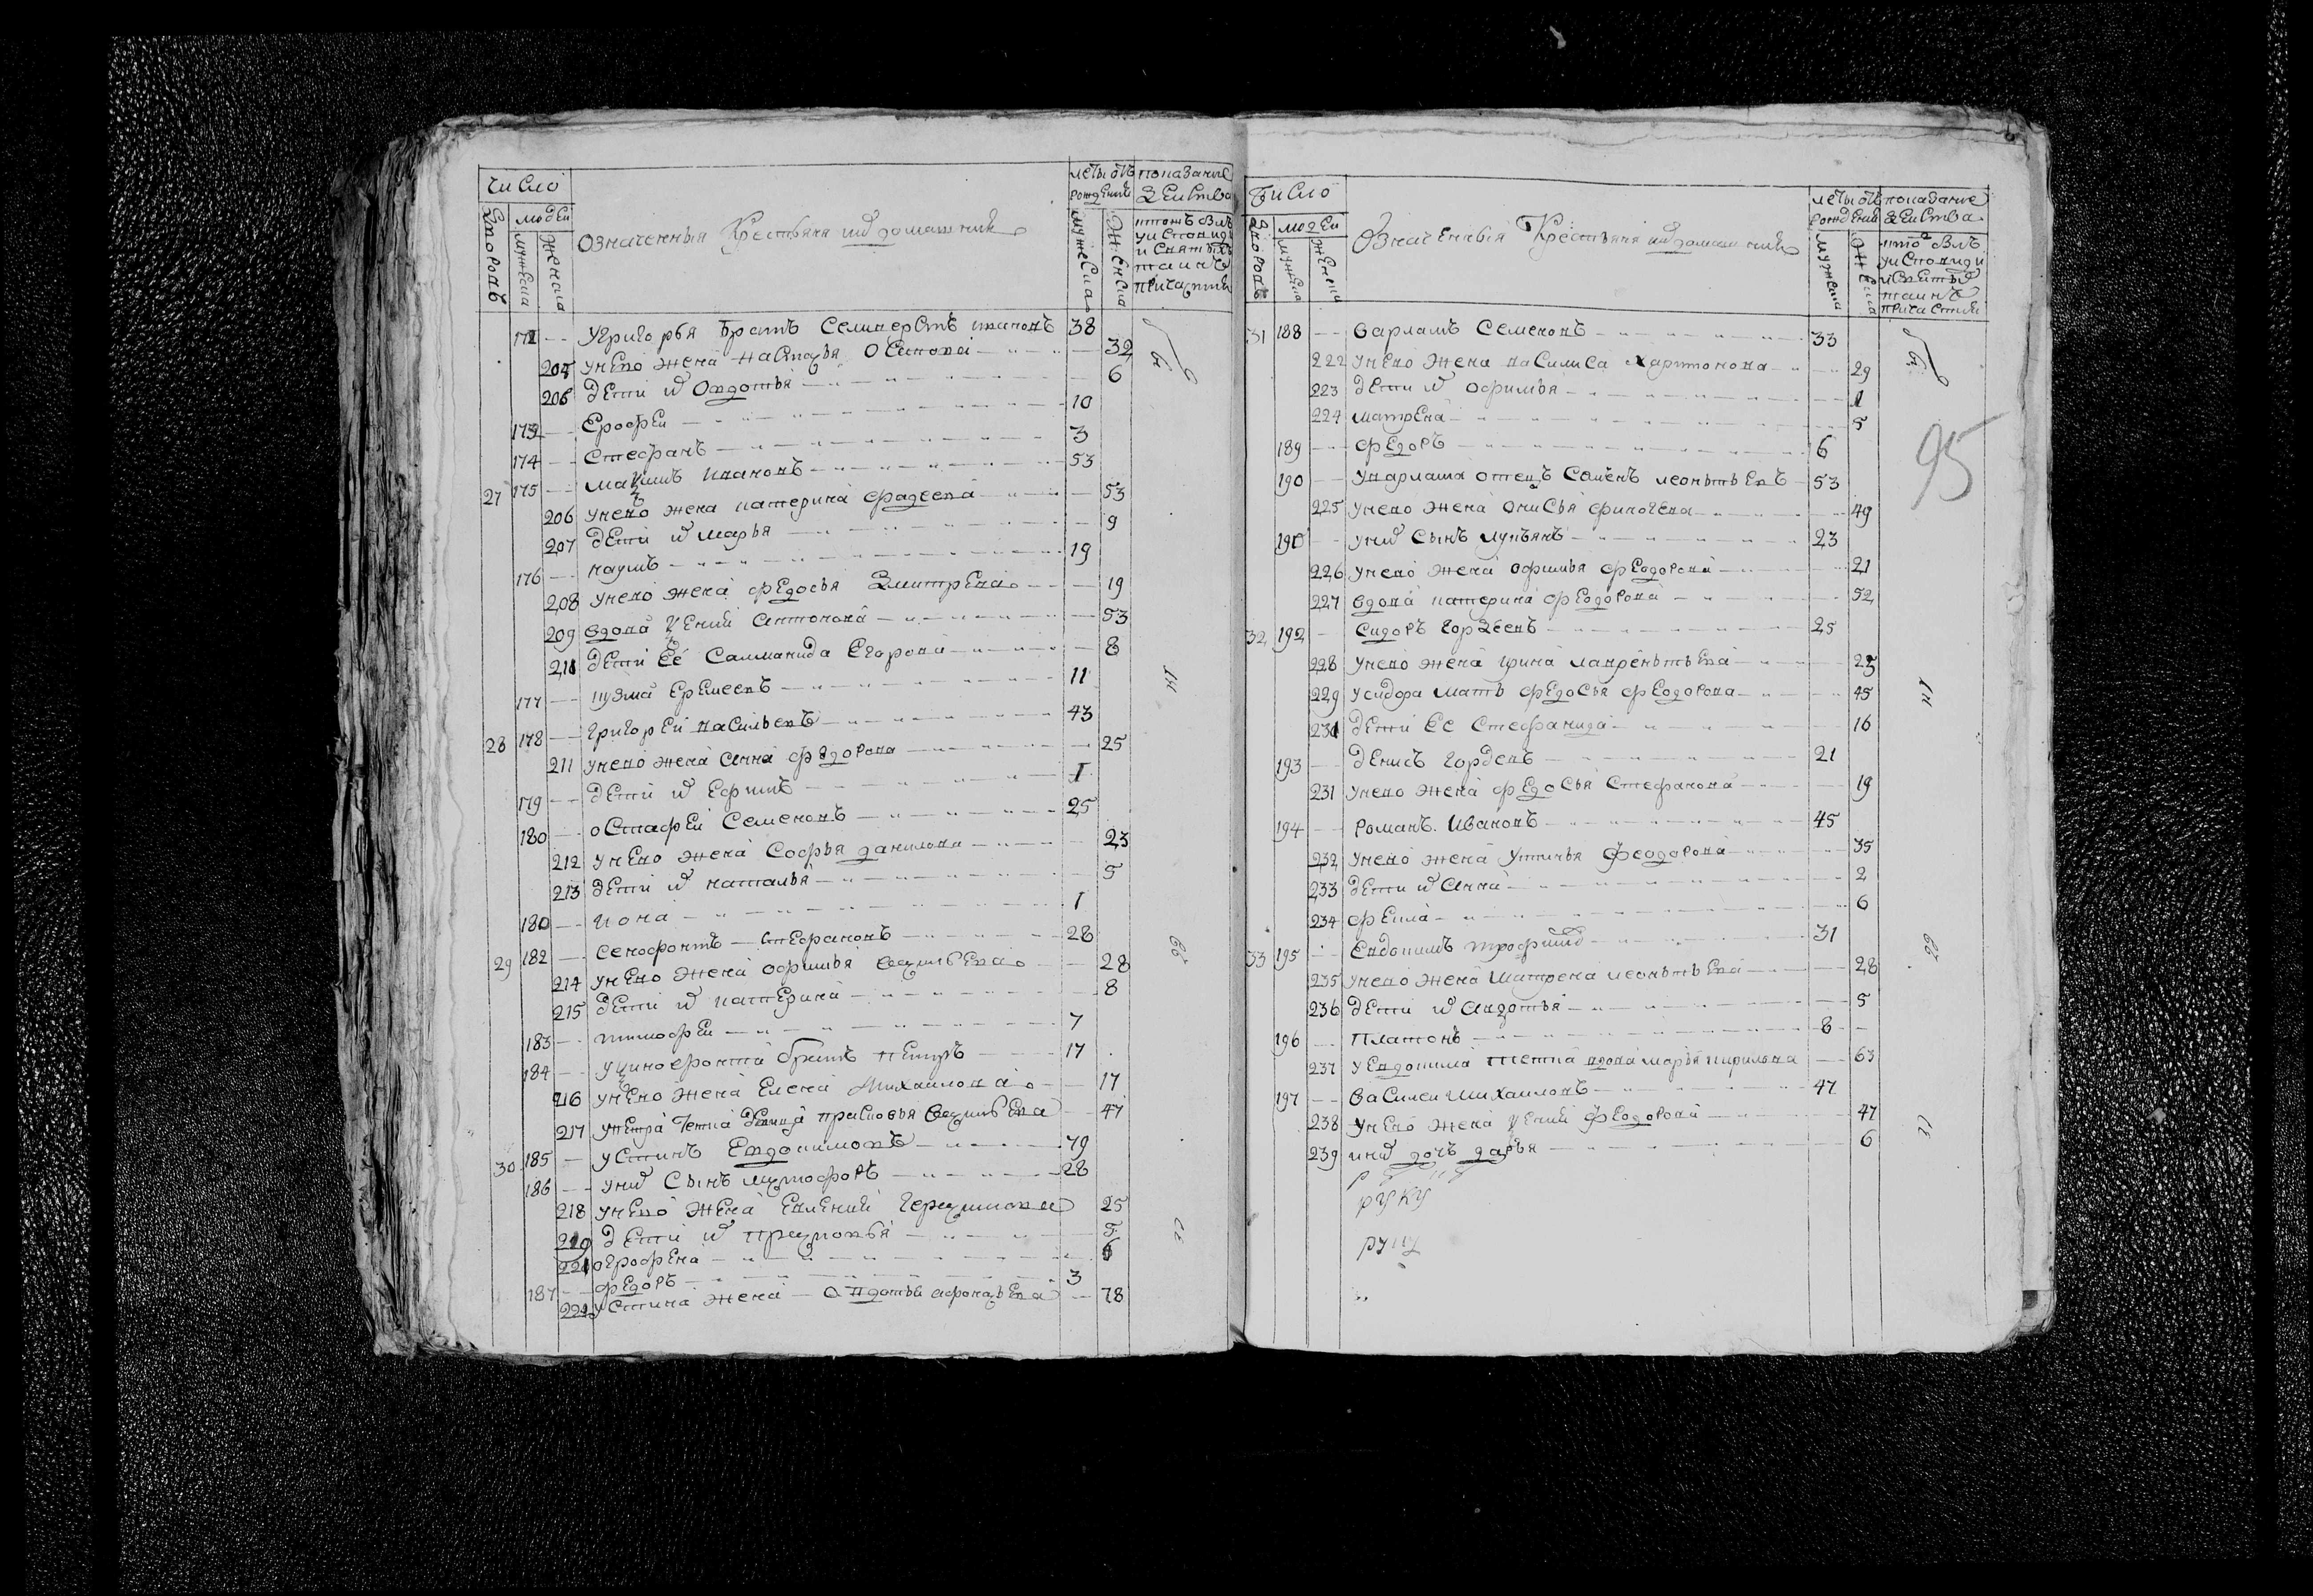 число
людей
дворовъ
мужеска
женска
Означенныя Крестьяня ихъ домашнии
леты отъ рожденїя
мужеска
женска
показание действа
кто былъ у исповеди и святыхъ таинъ причастия
172 у григорья братъ Селиверстъ ивановъ 38
204 у него жена настасья Осипова 32
205 дети их Овдотья 6
173 Ерофеи 10
174 Стефанъ 3
27 175 маѯимъ Ивановъ 53
206 у него жена катерина фадеева 53
207 дети их марья 9
176 наумъ 19
208 у него жена федосья Дмитрева 19
209 вдова ѯения Антонова 53
210 дети Ее Саламанида Егорова 8
177 кузма Еремеевъ 11
28 178 григореи васильевъ 43
211 у него жена Анна федорова 25
179 дети их Ефимъ 1
180 Остафеи Семеновъ 25
212 у него жена Софья данилова 23
213 дети их наталья 5
180 иона 1
29 182 Сенофонтъ Стефановъ 28
214 у него жена офимья васильева 28
215 дети их катерина 8
183 тимофеи 7
184 у ѯинофонта братъ петръ 17
216 у него жена Елена Михаилова 17
217 у петра тетка девка прасковья васильева 47
30 185 устинъ Евдокимовъ 79
186 у них Сынъ никифоръ 28
218 у него жена Евгения герасимова 25
219 дети их прасковья 5
220 огрофена 6
187 федоръ 3
221 устина жена Овдотья афонасьева 78
число
людей
дворовъ
мужеска
женска
Означенныя Крестьяня ихъ домашнии
леты отъ рождения
мужеска
женска
показание действа
кто былъ у исповеди и святыхъ таинъ причастия
95
31 188 варламъ Семеновъ 33
222 у него жена василиса харитонова 29
223 дети их офимья 1
224 матрена 5
189 федоръ 6
190 у варлама отецъ Семенъ леонтьевъ 53
225 у него жена Онисья финогева 49
190 у них Сынъ лукьянъ 23
226 у него жена офимья феодорова 21
227 вдова катерина феодорова 52
32 192 Сидоръ гордеевъ 25
228 у него жена ирина лаврентьева 25
229 у сидора мать федосья феодорова 45
230 дети Ее Стефанида 16
193 денисъ гордевъ 21
231 у него жена федосья Стефанова 19
194 романъ Ивановъ 45
232 у него жена устинья феодорова 35
233 дети их Анна 2
234 фекла 6
33 195 Евдокимъ трофимов 31
235 у него жена Матрена леонтьева 28
236 дети их Авдотья 5
196 Платонъ 8
237 у Евдокима тетка вдова марья кирилова 63
197 василеи михаиловъ 47
238 у него жена ѯения феодорова 47
239 и их дочь дарья 6
руку
руку